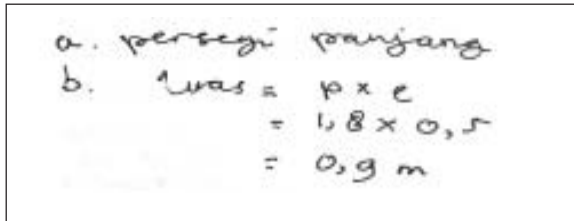 a. persegi panjang
b. luas = p x l
= 1,8 x 0,5
= 0,9 m